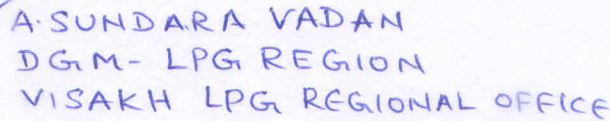 A. SUNDARA VADAN
DGM- LPG REGION
VISAKH LPG REGIONAL OFFICE